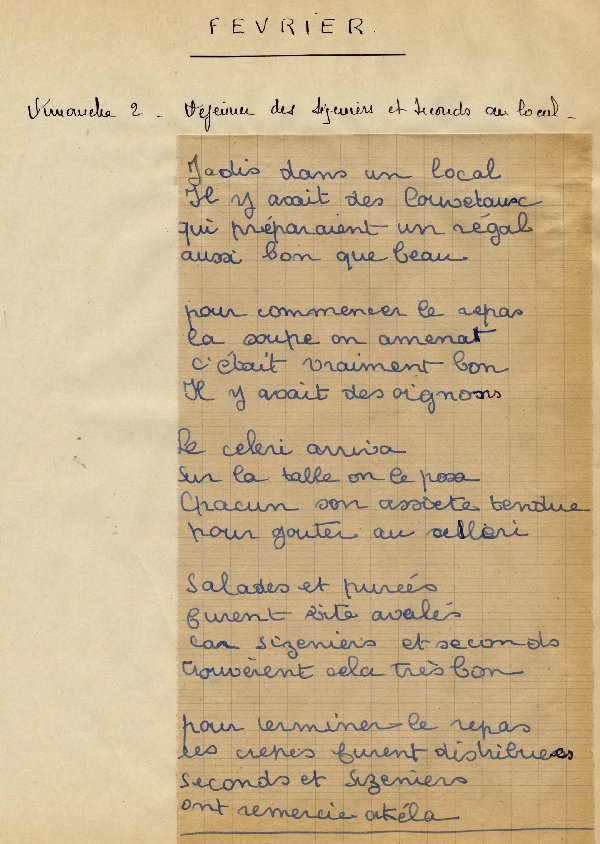 FEVRIER.
Dimanche 2 - Déjeuner des Sizeniers et Seconds au local -
Jadis dans un local
Il y avait des louvetaux
qui préparaient un régal
aussi bon que beau
pour commencer le repas
la soupe on amenat
c'était vraiment bon
Il y avait des oignons
Le celeri arriva
Sur la table on le posa
Chacun son assiete tendue
pour gouter au celleri
Salades et purcés
furent vite avalés
car sizeniers et seconds
trouvèrent cela très bon
pour terminer le repas
les crepes furent distribuees
seconds et sizeniers
ont remercie akéla